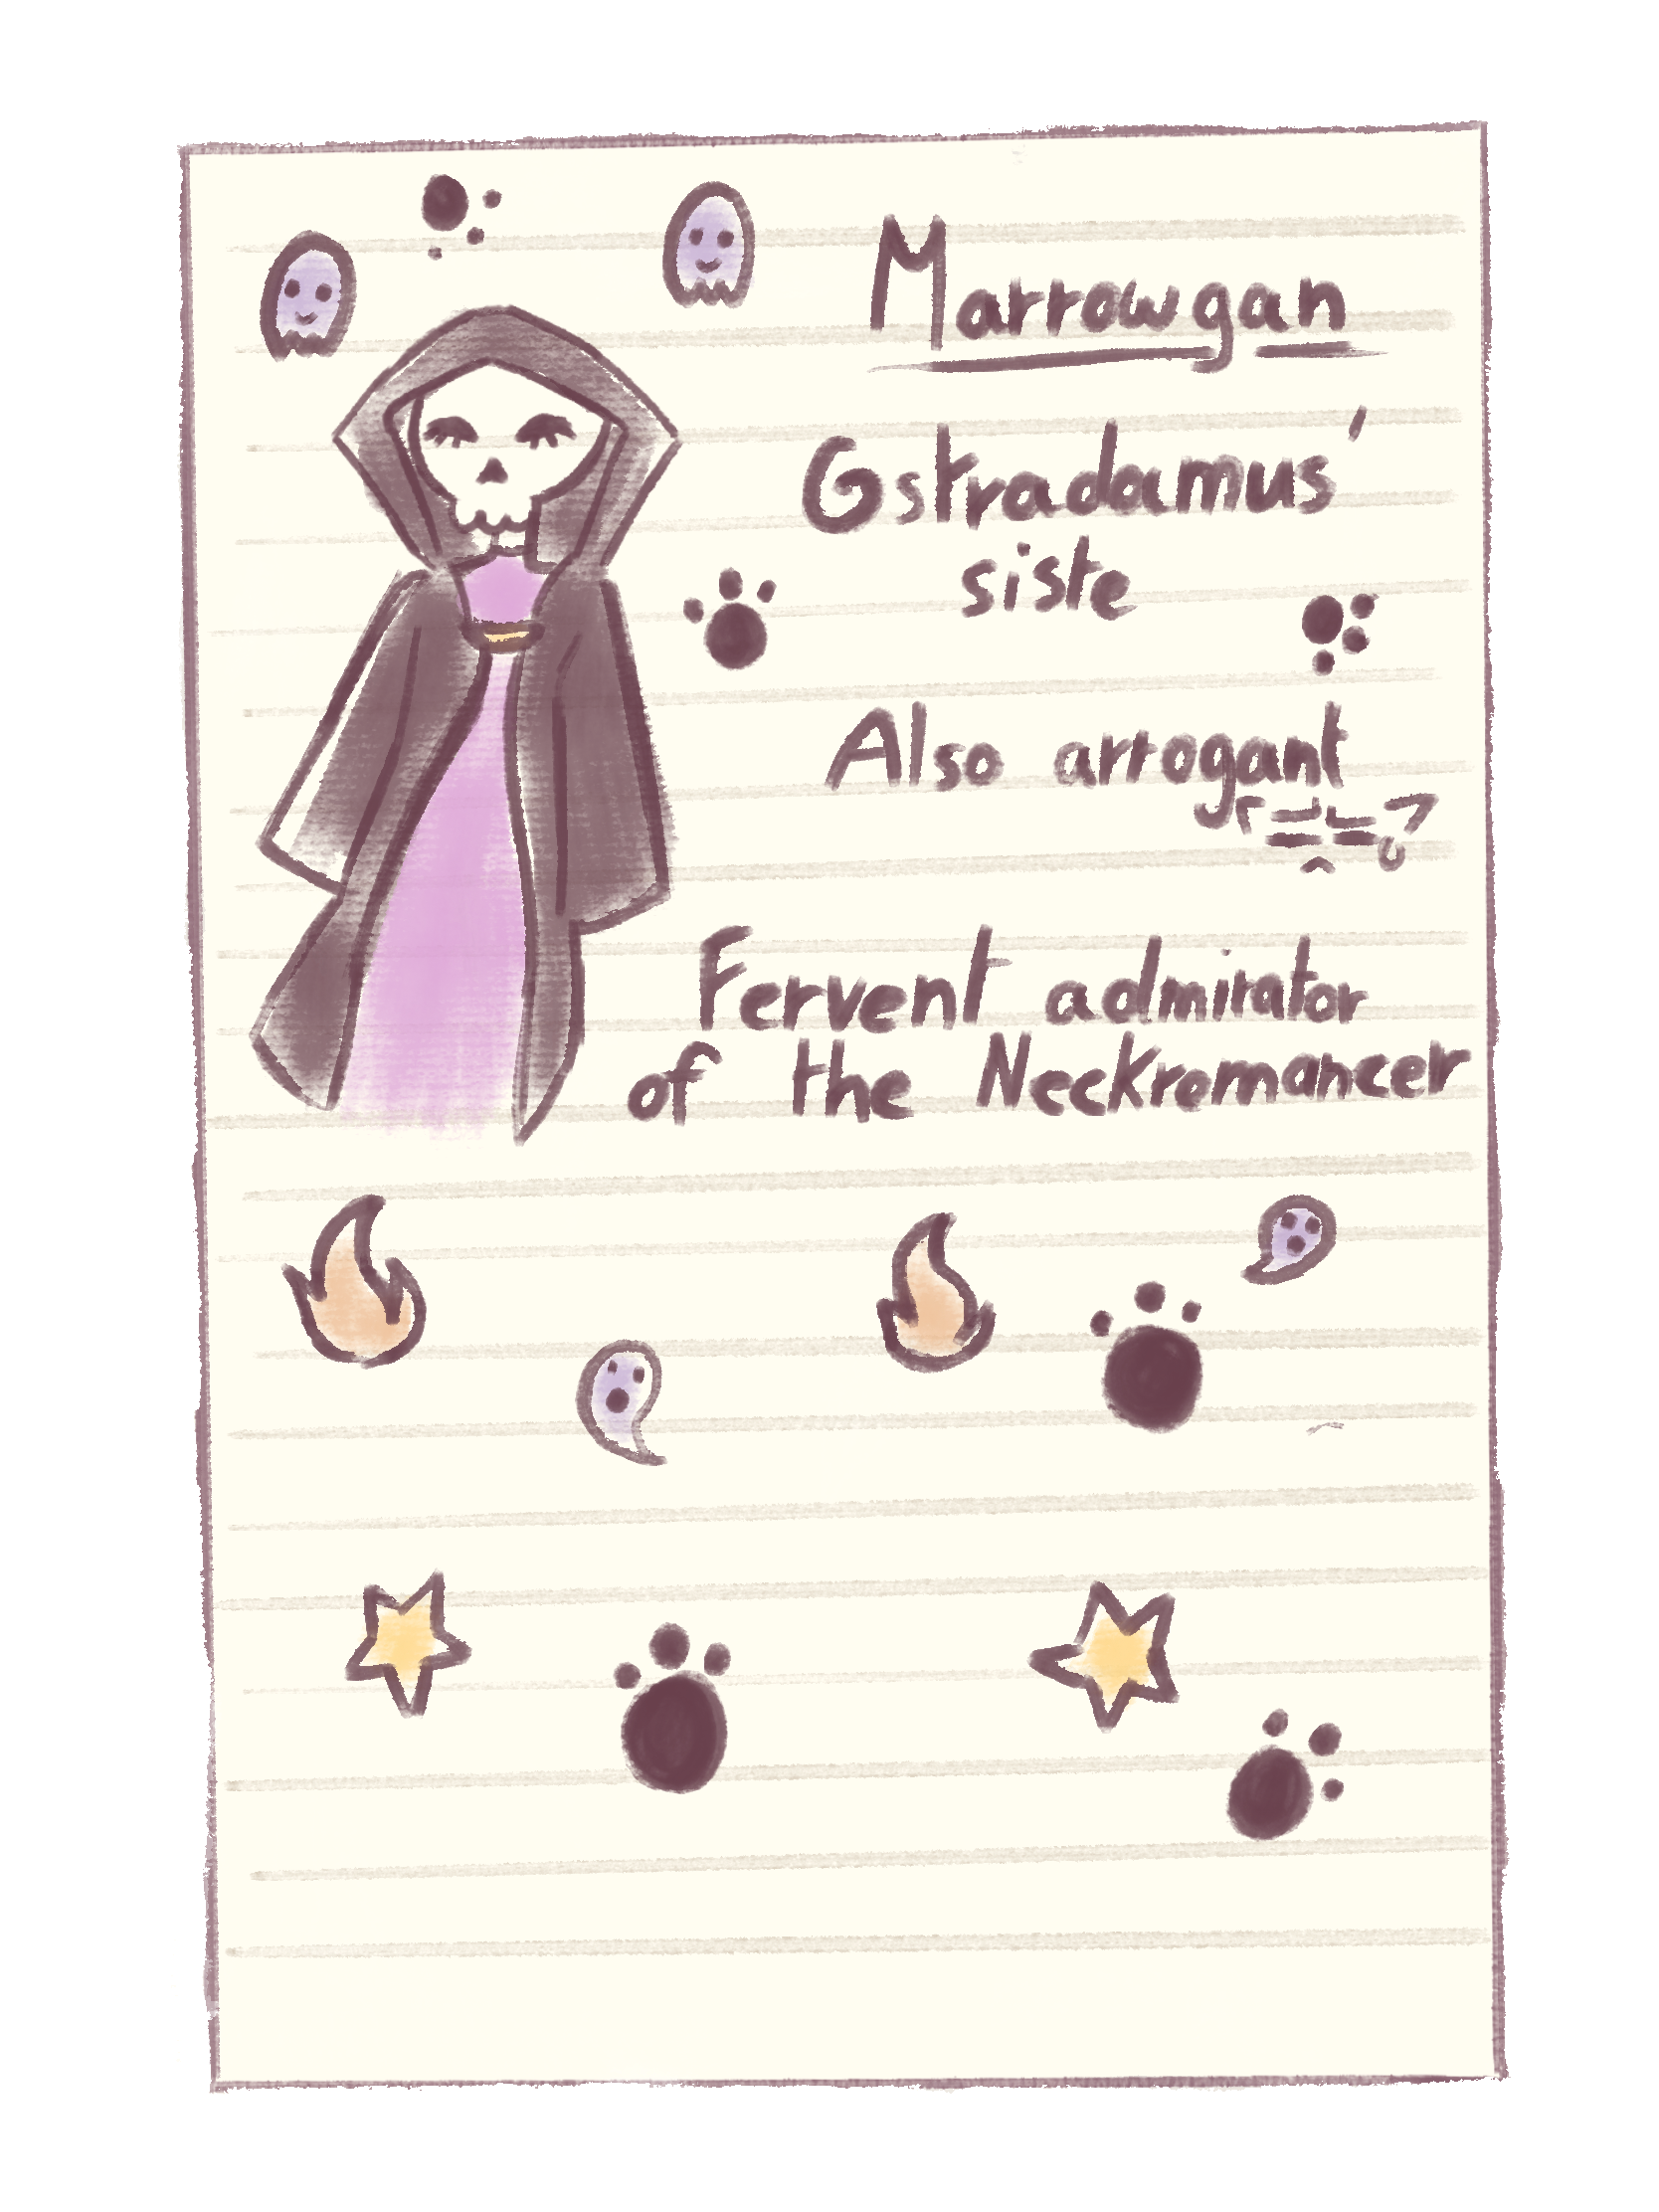 Marrowgan
Gstradamus'
siste
Also arrogant
Fervent admirator
of the Neckromancer